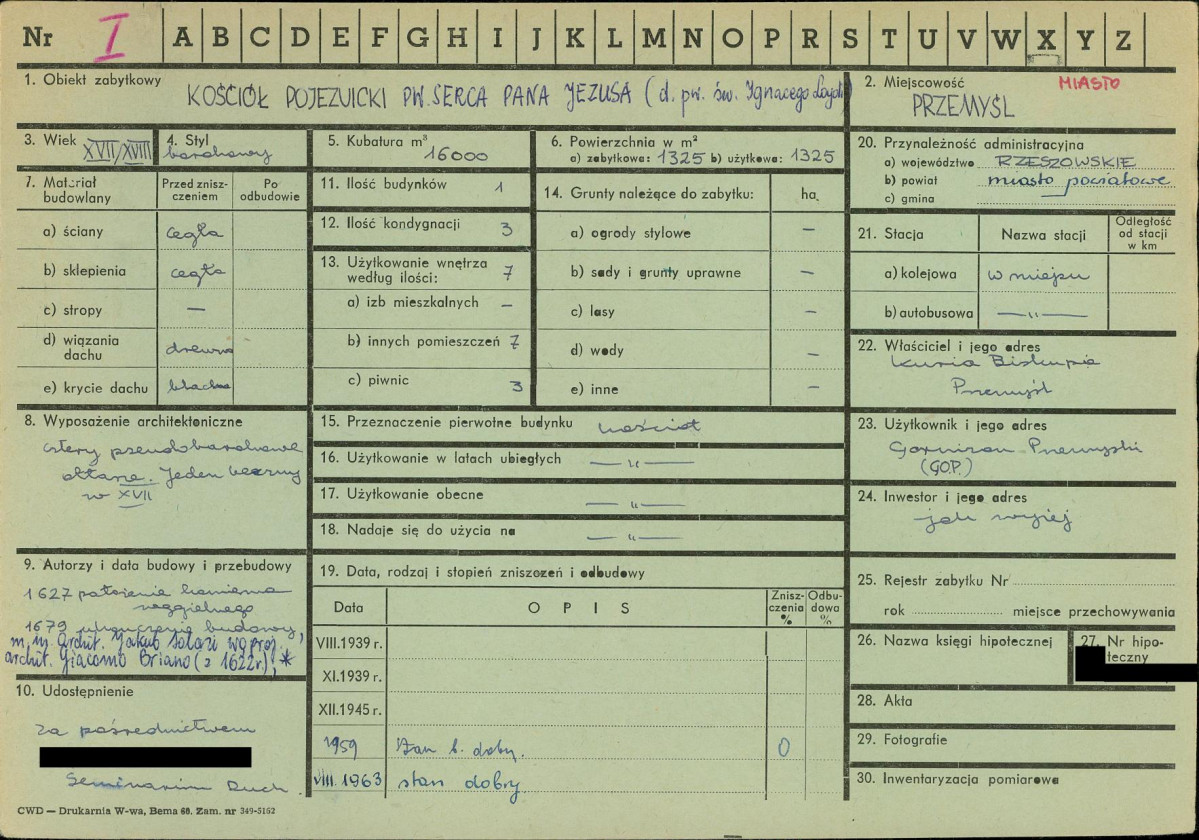 Nr I A B C D E F G H I J K L M N O P R S T U V W X Y Z
1. Obiekt zabytkowy
KOŚCIÓŁ POJEZUICKI PW. SERCA PANA JEZUSA (d. pw. św. Ignacego Loyoli)
2. Miejscowość MIASTO
PRZEMYŚL
3. Wiek XVII/XVIII
4. Styl
barokowy
5. Kubatura m³
16000
6. Powierzchnia w m²
a) zabytkowa: 1325 b) użytkowa: 1325
20. Przynależność administracyjna
a) województwo RZESZOWSKIE
b) powiat miasto powiatowe
c) gmina
7. Materiał budowlany
Przed zniszczeniem
Po odbudowie
a) ściany cegła
b) sklepienia cegła
c) stropy —
d) wiązania dachu drewno
e) krycie dachu blacha
11. Ilość budynków 1
12. Ilość kondygnacji 3
13. Użytkowanie wnętrza według ilości: 7
a) izb mieszkalnych —
b) innych pomieszczeń 7
c) piwnic 3
14. Grunty należące do zabytku: ha
a) ogrody stylowe —
b) sady i grunty uprawne —
c) lasy —
d) wody —
e) inne —
21. Stacja
Nazwa stacji
Odległość od stacji w km
a) kolejowa w miejscu
b) autobusowa —"—
22. Właściciel i jego adres
Kuria Biskupia
Przemyśl
8. Wyposażenie architektoniczne
cztery pseudobarokowe
ołtarze. Jeden boczny
w XVII
15. Przeznaczenie pierwotne budynku kościół
16. Użytkowanie w latach ubiegłych —"—
17. Użytkowanie obecne —"—
18. Nadaje się do użycia na —"—
23. Użytkownik i jego adres
Garnizon Przemyski
(GOP.)
24. Inwestor i jego adres
jak wyżej
9. Autorzy i data budowy i przebudowy
1627 położenie kamienia
węgielnego
1679 ukończenie budowy,
m. in. archit. Jakub Solari wg proj.
archit. Giacomo Briano (z 1622 r.), *
10. Udostępnienie
za pośrednictwem
Seminarium Duch.
19. Data, rodzaj i stopień zniszczeń i odbudowy
Data
OPIS
Zniszczenia %
Odbudowa %
VIII.1939 r.
XI.1939 r.
XII.1945 r.
1959 Stan b. dobry. 0
VIII.1963 stan dobry
25. Rejestr zabytku Nr
rok miejsce przechowywania
26. Nazwa księgi hipotecznej
27. Nr hipoteczny
28. Akta
29. Fotografie
30. Inwentaryzacja pomiarowa
CWD — Drukarnia W-wa, Bema 60. Zam. nr 349-5162